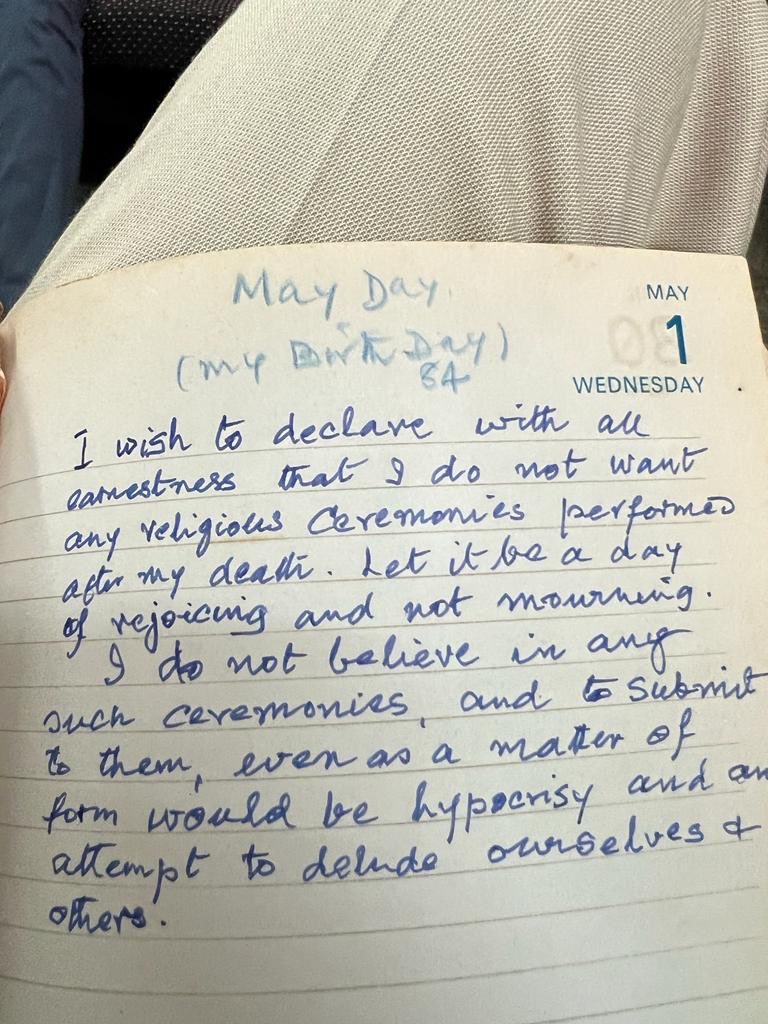 May Day.
(my Birth Day)
84
MAY
1
WEDNESDAY
30
I wish to declare with all
earnestness that I do not want
any religious ceremonies performed
after my death. Let it be a day
of rejoicing and not mourning.
I do not believe in any
such ceremonies, and to submit
to them, even as a matter of
form would be hypocrisy and an
attempt to delude ourselves &
others.